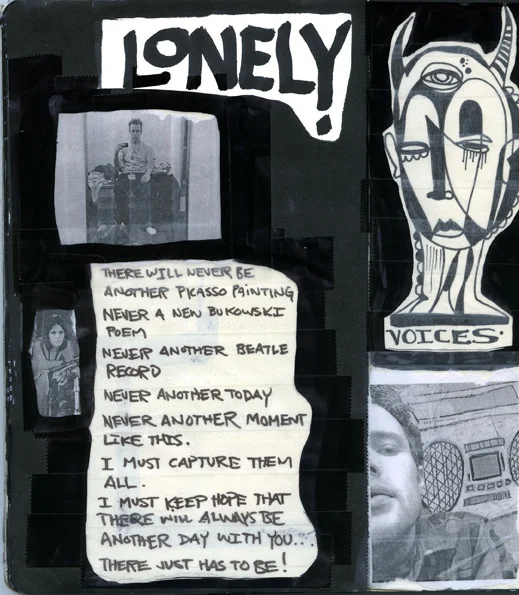 LONELY!
THERE WILL NEVER BE
ANOTHER PICASSO PAINTING
NEVER A NEW BUKOWSKI
POEM
NEVER ANOTHER BEATLE
RECORD
NEVER ANOTHER TODAY
NEVER ANOTHER MOMENT
LIKE THIS.
I MUST CAPTURE THEM
ALL.
I MUST KEEP HOPE THAT
THERE WILL ALWAYS BE
ANOTHER DAY WITH YOU...
THERE JUST HAS TO BE!
VOICES.